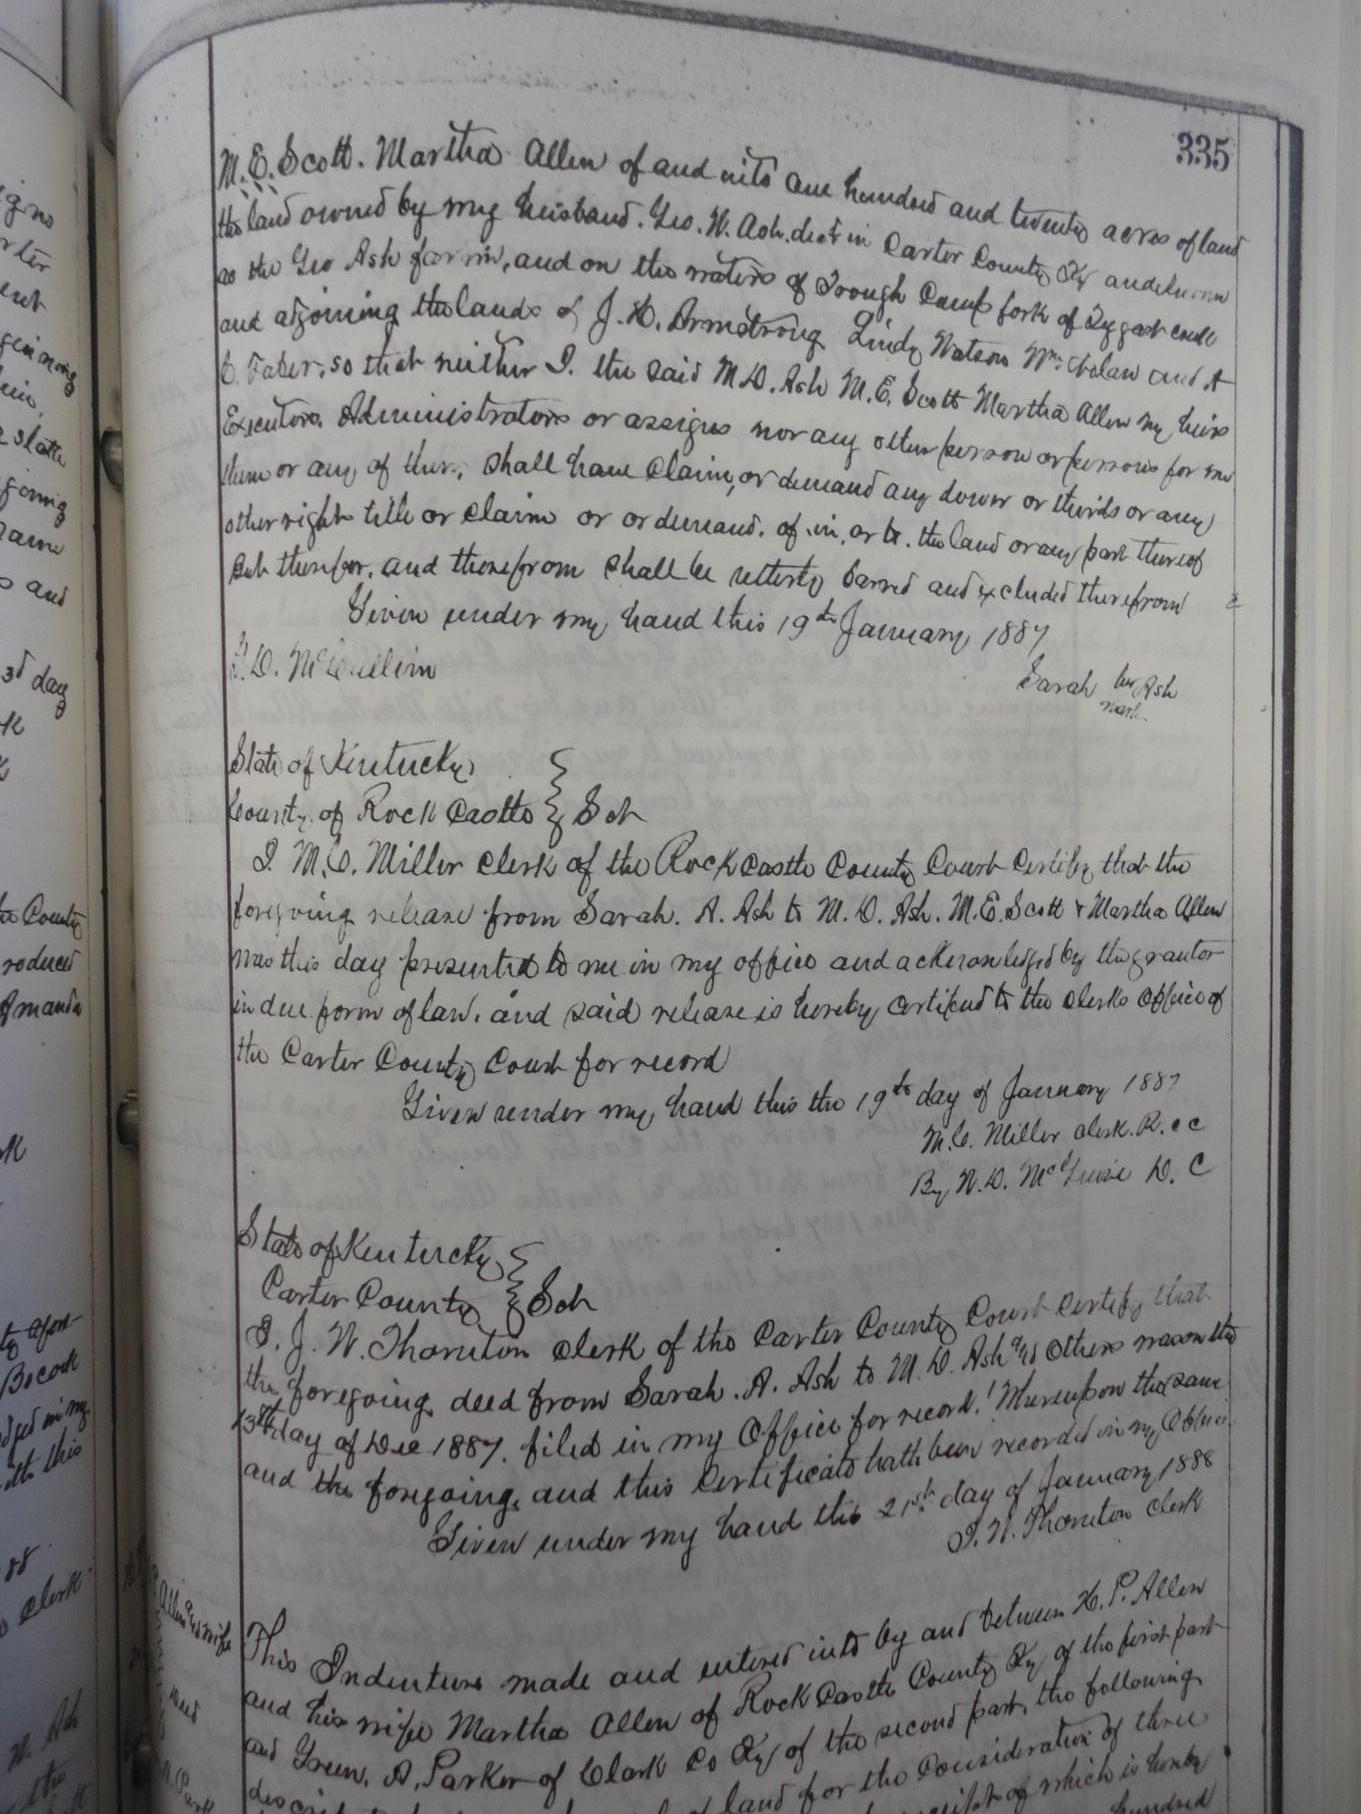 335
M.E. Scott. Martha Allen of and into one hundred and twenty acres of land
the land owned by my husband. Geo. W. Ash. dec'd in Carter County Ky and known
as the Geo Ash farm, and on the waters of Trough Camp fork of Tygart creek
and adjoining the lands of J. H. Armstrong Lindy Watson Wm. and A
so that neither I. the said M.D. Ash M.E. Scott Martha Allen my heirs
Executors. Administrators or assigns nor any other person or persons for me
them or any of them, shall have claim, or demand any dower or thirds or any
other right title or claim or or demand. of. in. or to. the land or any part thereof
but therefor, and therefrom shall be utterly barred and excluded therefrom
Given under my hand this 19th January 1887
Sarah her Ash
mark
State of Kentucky
County of Rock Castle } Sct
I. M.C. Miller Clerk of the Rock Castle County Court Certify that the
foregoing release from Sarah. A. Ash to M. D. Ash. M.E. Scott & Martha Allen
was this day presented to me in my office and acknowledged by the grantor
in due form of law. and said release is hereby certified to the clerks office of
the Carter County Court for record
Given under my hand this the 19th day of January 1887
M.C. Miller clerk. R.c c
By N.D. McGuire D. C
State of Kentucky
Carter County } Sct
I. J. W. Thornton clerk of the Carter County Court certify that
the foregoing deed from Sarah. A. Ash to M. D. Ash and others was on the
13th day of Dec 1887. filed in my Office for record! Whereupon the same
and the foregoing, and this Certificate hath been recorded in my Office
Given under my hand this 21st day of January 1888
J. W. Thornton Clerk
This Indenture made and entered into by and between H. P. Allen
and his wife Martha Allen of Rock Castle County Ky of the first part
and Green. A. Parker of Clark Co Ky of the second part, the following
land for the Consideration of three
receipt of which is hereby
hundred